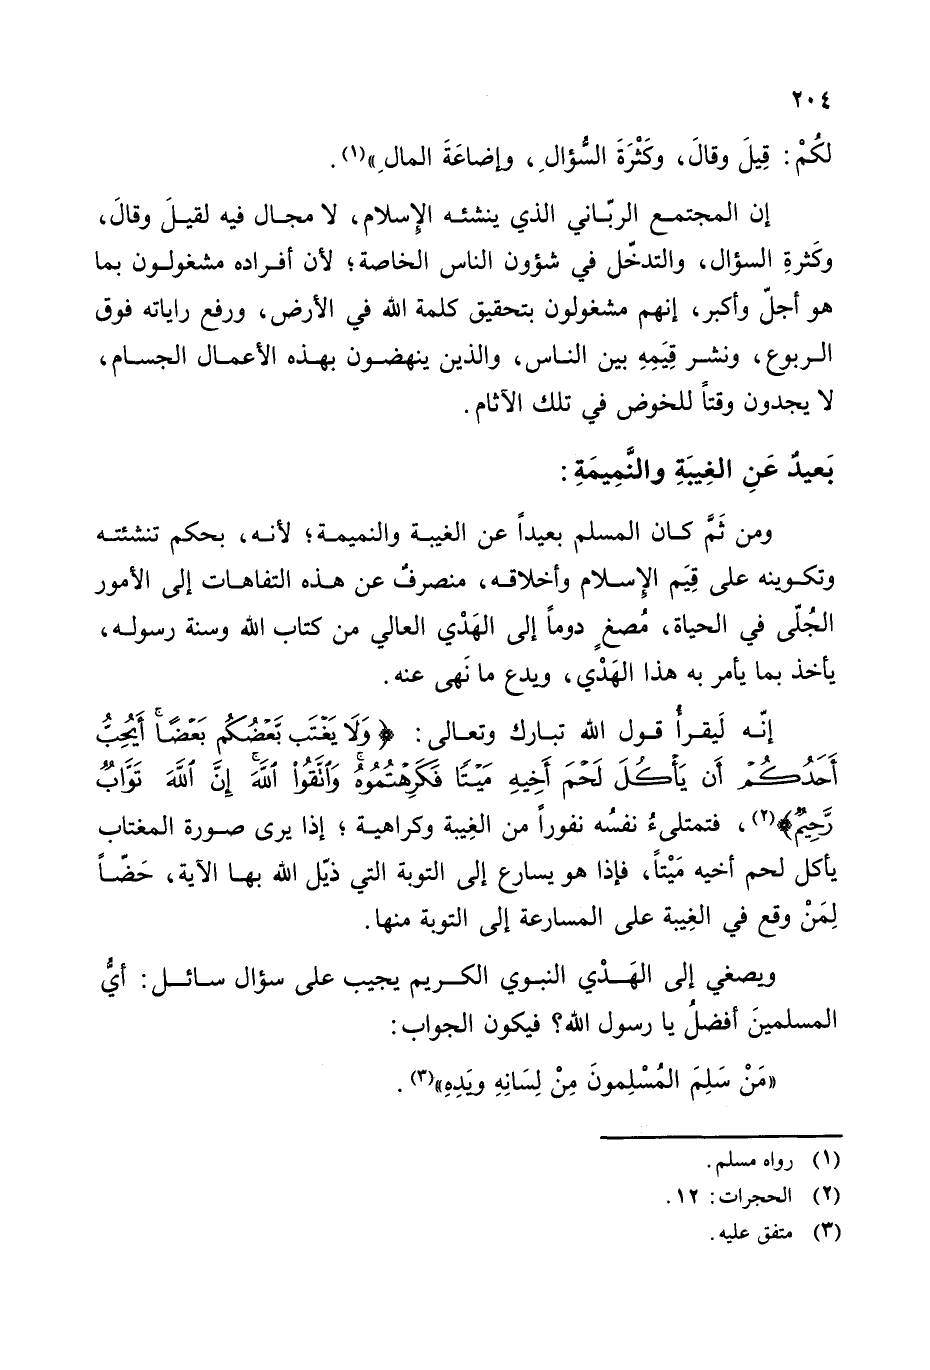 ٢٠٤
لكُمْ: قِيلَ وقالَ، وكَثْرَةَ السُّؤالِ، وإضاعَةَ المالِ»(١).
إن المجتمع الربّاني الذي ينشئه الإسلام، لا مجال فيه لقيلَ وقالَ،
وكَثرةِ السؤال، والتدخّل في شؤون الناس الخاصة؛ لأن أفراده مشغولون بما
هو أجلّ وأكبر، إنهم مشغولون بتحقيق كلمة الله في الأرض، ورفع راياته فوق
الربوع، ونشر قِيَمِهِ بين الناس، والذين ينهضون بهذه الأعمال الجسام،
لا يجدون وقتاً للخوض في تلك الآثام.
بَعيدٌ عَنِ الغِيبَةِ والنَّمِيمَةِ:
ومن ثَمَّ كان المسلم بعيداً عن الغيبة والنميمة؛ لأنه، بحكم تنشئته
وتكوينه على قِيَم الإسلام وأخلاقه، منصرفٌ عن هذه التفاهات إلى الأمور
الجُلّى في الحياة، مُصغٍ دوماً إلى الهَدْي العالي من كتاب الله وسنة رسوله،
يأخذ بما يأمر به هذا الهَدْي، ويدع ما نَهى عنه.
إنّه لَيقرأُ قول الله تبارك وتعالى: ﴿وَلَا يَغْتَب بَّعْضُكُم بَعْضًا ۚ أَيُحِبُّ
أَحَدُكُمْ أَن يَأْكُلَ لَحْمَ أَخِيهِ مَيْتًا فَكَرِهْتُمُوهُ ۚ وَٱتَّقُوا۟ ٱللَّهَ ۚ إِنَّ ٱللَّهَ تَوَّابٌ
رَّحِيمٌ﴾(٢)، فتمتلىءُ نفسُه نفوراً من الغِيبة وكراهية؛ إذا يرى صورة المغتاب
يأكل لحم أخيه مَيْتاً، فإذا هو يسارع إلى التوبة التي ذيّل الله بها الآية، حَضّاً
لِمَنْ وقع في الغِيبة على المسارعة إلى التوبة منها.
ويصغي إلى الهَدْي النبوي الكريم يجيب على سؤال سائل: أيُّ
المسلمينَ أفضلُ يا رسول الله؟ فيكون الجواب:
«مَنْ سَلِمَ المُسْلِمونَ مِنْ لِسَانِهِ ويَدِهِ»(٣).
(١) رواه مسلم.
(٢) الحجرات: ١٢.
(٣) متفق عليه.